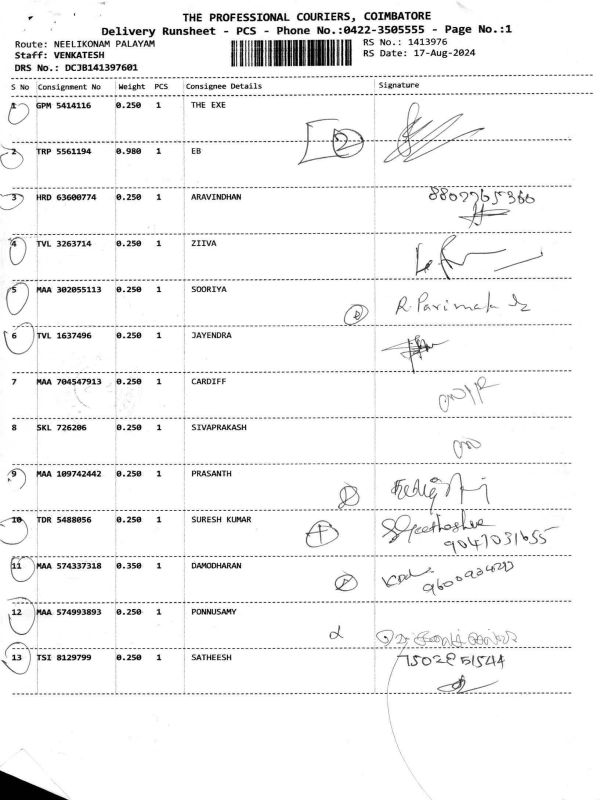 THE PROFESSIONAL COURIERS, COIMBATORE
Delivery Runsheet - PCS - Phone No.:0422-3505555 - Page No.:1
Route: NEELIKONAM PALAYAM RS No.: 1413976
Staff: VENKATESH RS Date: 17-Aug-2024
DRS No.: DCJB141397601
S No Consignment No Weight PCS Consignee Details Signature
1 GPM 5414116 0.250 1 THE EXE
2 TRP 5561194 0.980 1 EB
3 HRD 63600774 0.250 1 ARAVINDHAN
4 TVL 3263714 0.250 1 ZIIVA
5 MAA 302055113 0.250 1 SOORIYA R. Parimala
6 TVL 1637496 0.250 1 JAYENDRA
7 MAA 704547913 0.250 1 CARDIFF
8 SKL 726206 0.250 1 SIVAPRAKASH
9 MAA 109742442 0.250 1 PRASANTH
10 TDR 5488056 0.250 1 SURESH KUMAR
9047031655
11 MAA 574337318 0.350 1 DAMODHARAN
12 MAA 574993893 0.250 1 PONNUSAMY
13 TSI 8129799 0.250 1 SATHEESH 7502851544